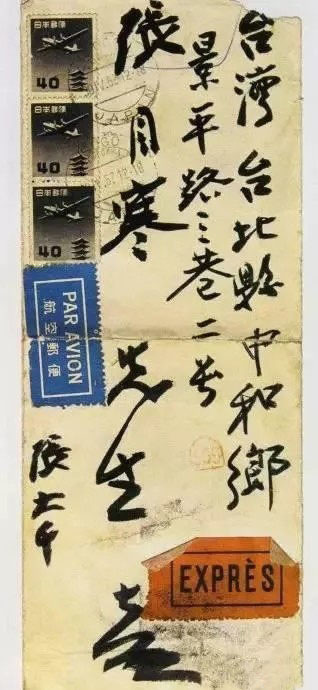 台灣 台北縣中和鄉
景平路三巷二号
張目寒 先生
張大千
日本郵便
40
日本郵便
40
日本郵便
40
JAPAN
PAR AVION
航空郵便
EXPRÈS